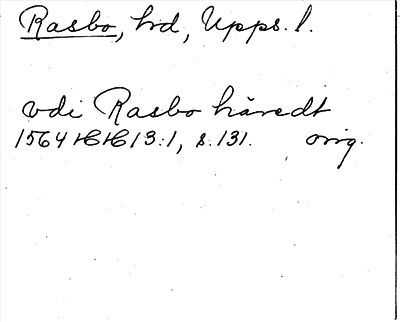 Rasbo, hd, Upps. l.
vdi Rasbo häredt
1564 HH 13:1, s. 131. orig.